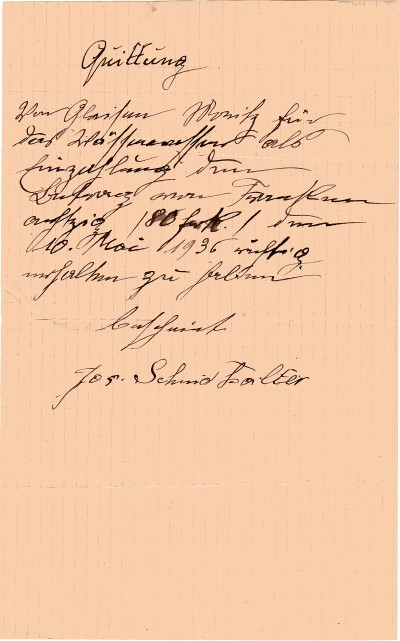 Quittung
Von Gleisen Moritz für
das Wässerwesen als
Einzahlung den
Betrag von Franken
achtzig /80 frk./ den
10. Mai 1936 richtig
erhalten zu haben
bescheint
Jos. Schmid Balter